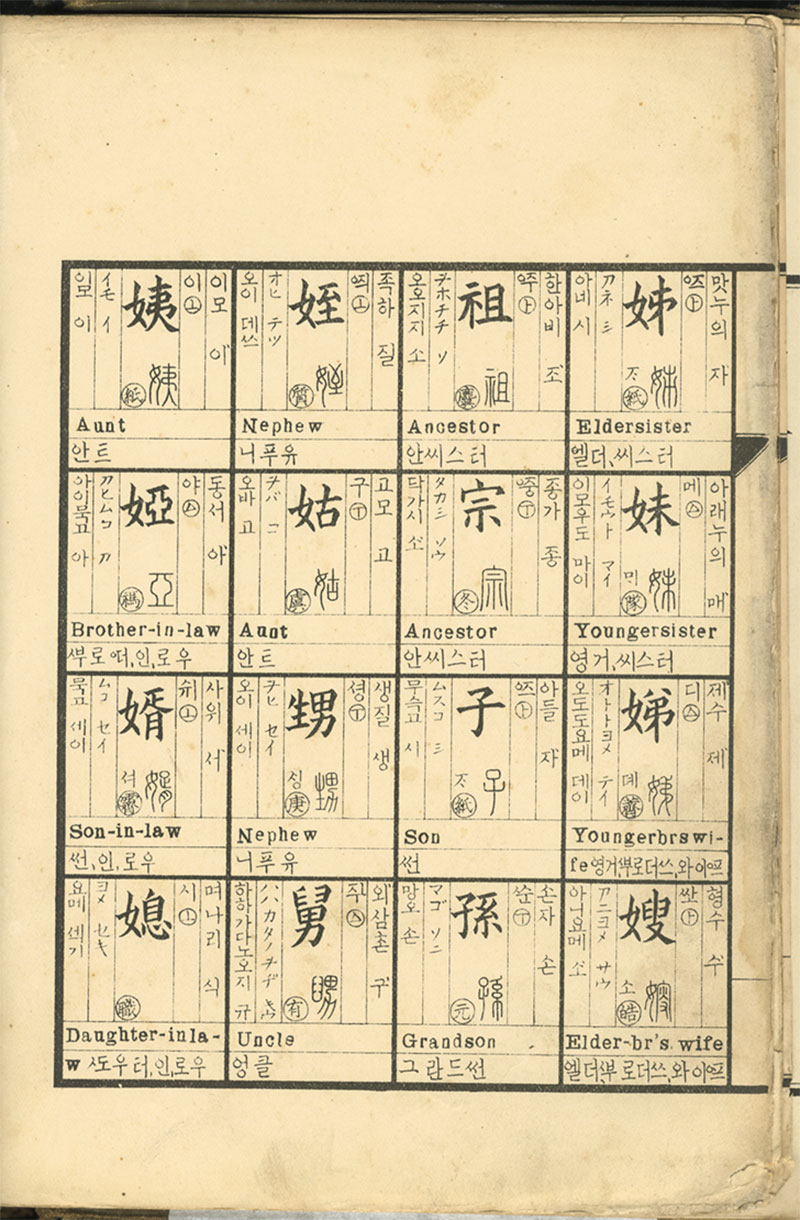 맛누의 자
姊
ᄌᆞ 紙
アネ シ
아네 시
Eldersister
엘더,씨스터
아래누의 매
메 去
妹
ᄆᆡ 隊
イモウト マイ
이모우도 마이
Youngersister
영거,씨스터
제수 제
디 去
娣
뎨 霽
オトトヨメ テイ
오도도요메 데이
Youngerbrswi-
fe 영거ᄲᅳ로더쓰,와이ᅋᅳ
형수 수
싼 上
嫂
소 皓
アニヨメ サウ
아니요메 소
Elder-br's wife
엘더,ᄲᅳ로더쓰,와이ᅋᅳ
한아비 조
祖
麌
ヲホチチ ソ
오오지지 소
Ancestor
안씨스터
종가 종
宗
冬
タカシ ソウ
다가시 소
Ancestor
안씨스터
아들 자
子
ᄌᆞ 紙
ムスコ シ
무스고 시
Son
썬
손자 손
순 下
孫
元
マゴ ソン
망오 손
Grandson
그란드썬
족하 질
姪
質
オヒ テツ
오이 데쓰
Nephew
니푸유
고모 고
구 下
姑
虞
ヲバ コ
오바 고
Aunt
안트
생질 생
셩 下
甥
ᄉᆡᆼ 庚
ヲヒ セイ
오이 세이
Nephew
니푸유
외삼촌 구
舅
有
Uncle
엉클
이모 이
이 上
姨
紙
イモ イ
이모 이
Aunt
안트
동서 아
야 去
婭
禡
アヒムコ ア
아이묵고 아
Brother-in-law
ᄲᅳ로떠,인,로우
사위 서
쉬 上
婿
셔 霽
ムコ セイ
묵고 세이
Son-in-law
썬,인,로우
며나리 식
시 上
媳
職
ヨメ セキ
요메 세기
Daughter-inla-
w ᄯᅩ우터,인,로우